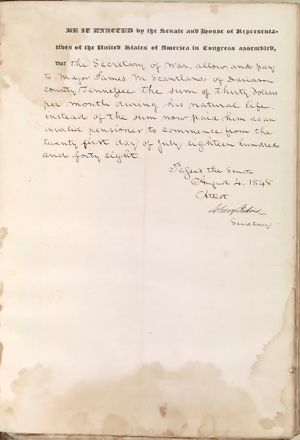 BE IT ENACTED by the Senate and House of Representa-
atives of the United States of America in Congress assembled,
THAT the Secretary of War, allow and pay
to Major James M Scantland of Davidson
county Tennessee the sum of Thirty Dollars
per month during his natural life
instead of the sum now paid him as an
invalid pensioner to commence from the
twenty first day of July eighteen hundred
and forty eight
Passed the Senate
August 4, 1848
Attest
Secretary